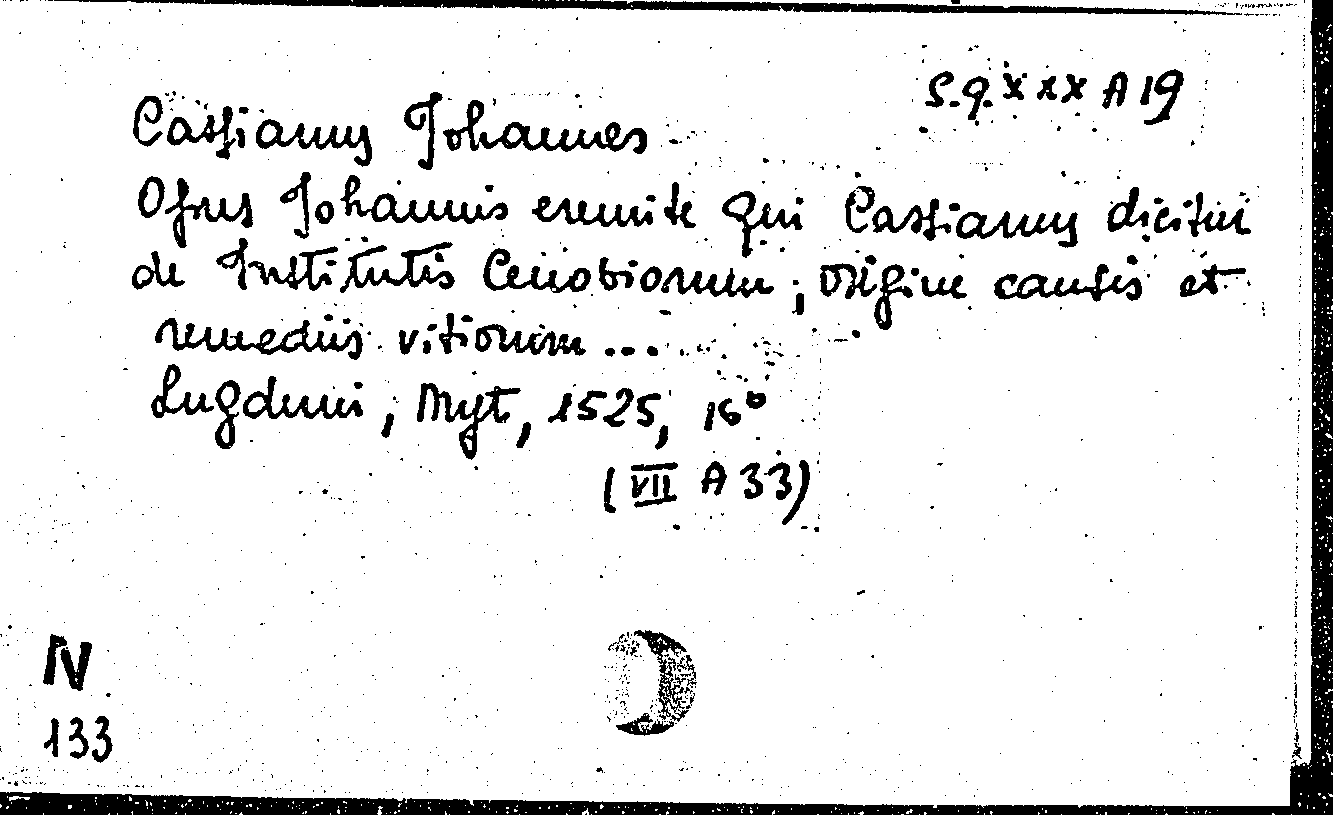 S.q. XXX A 19
Cassianus Johannes
Opus Johannis eremite qui Cassianus dicitur
de Institutis Cenobiorum, origine causis et
remediis vitiorum ...
Lugduni, Myt, 1525, 16°
(VII A 33)
N
133